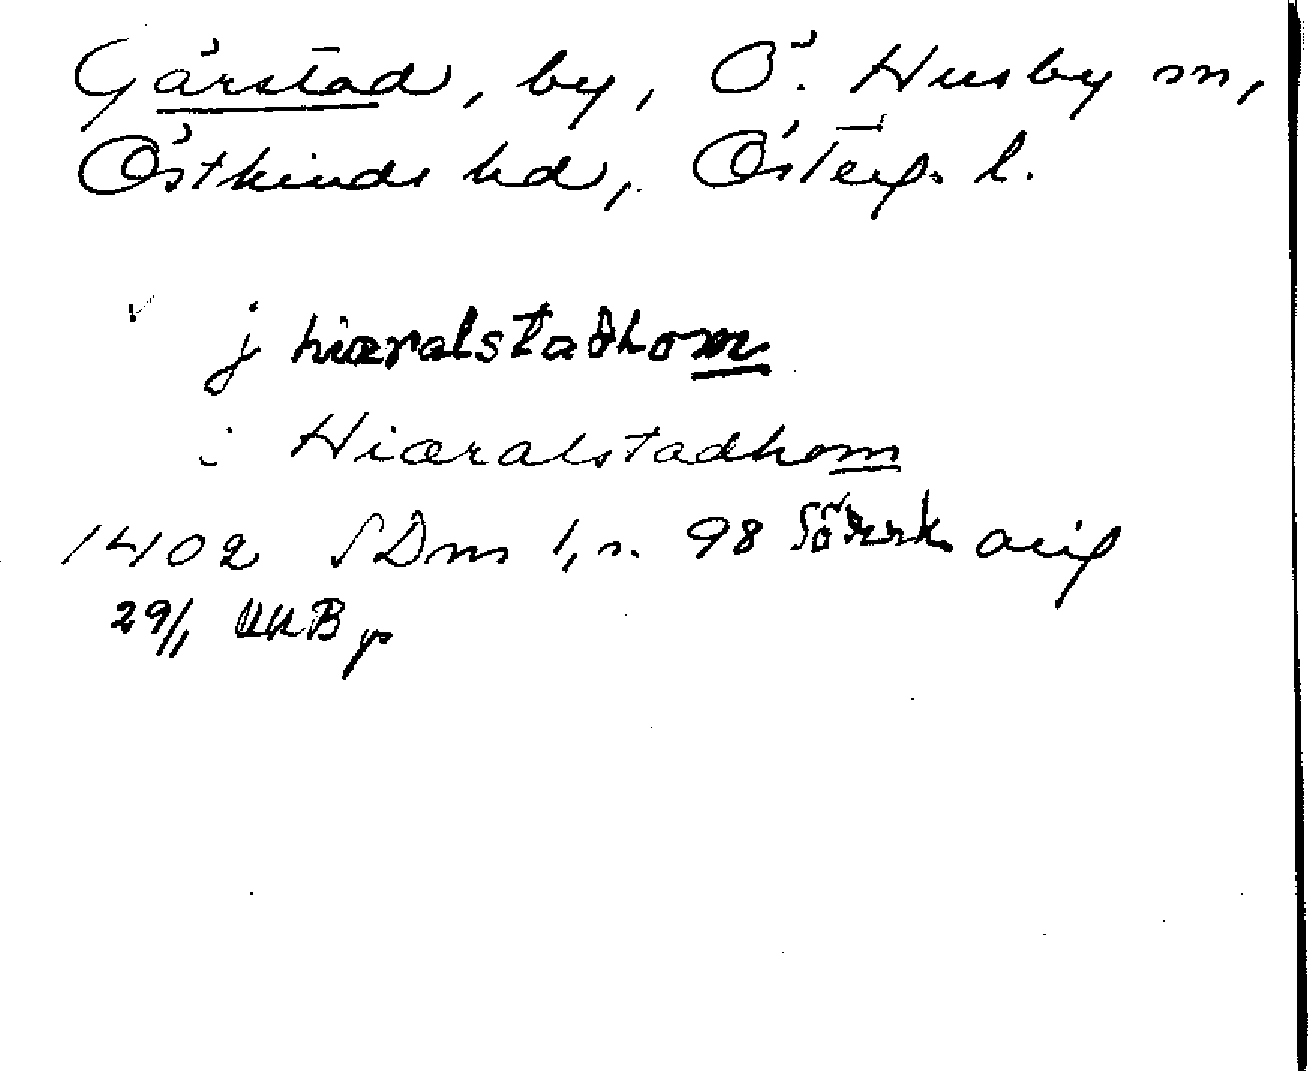 Gärstad, by, Ö. Husby sn,
Östkinds hd, Österg. l.
j hiæralstadhom
i Hiæralstadhom
1402 SDns 1, s. 98 orig
29/1 p